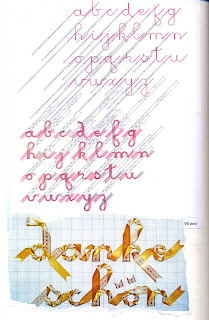 abcdefg
hijklmn
opqrstu
vwxyz
abcdefg
hijklmn
opqrstu
vwxyz
danke
schön